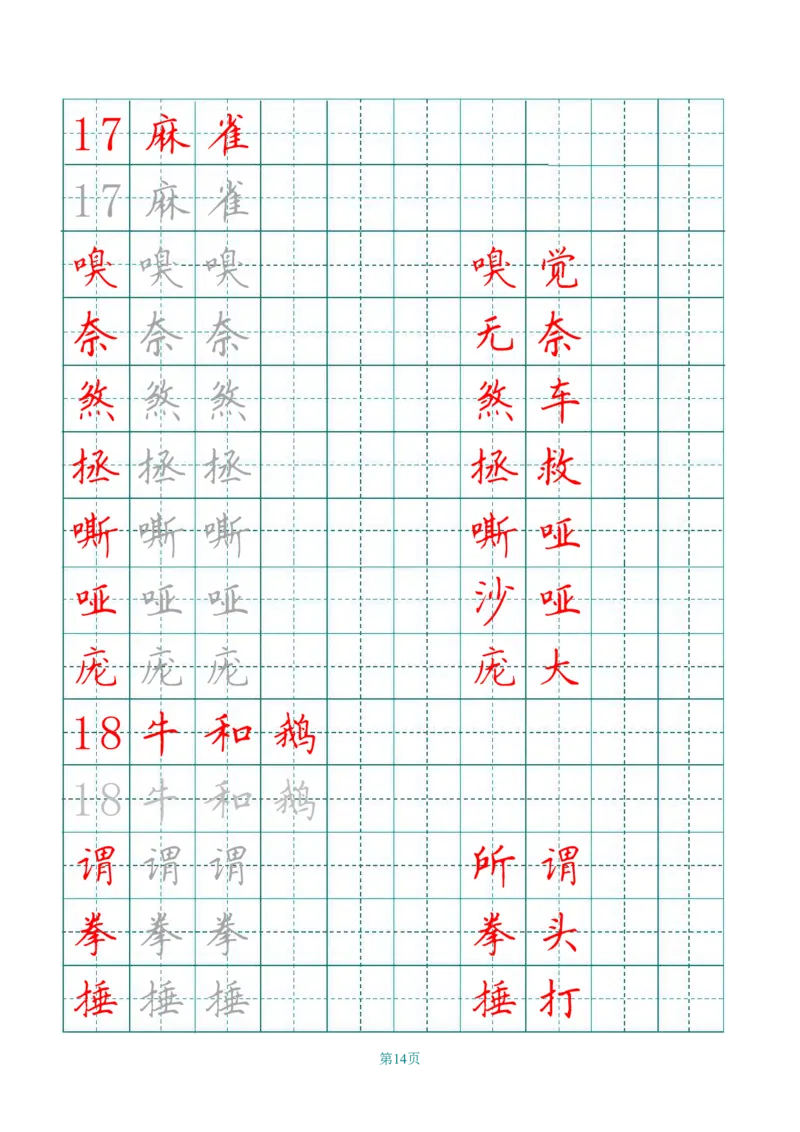 17 麻雀
17 麻雀
嗅嗅嗅 嗅觉
奈奈奈 无奈
煞煞煞 煞车
拯拯拯 拯救
嘶嘶嘶 嘶哑
哑哑哑 沙哑
庞庞庞 庞大
18 牛和鹅
18 牛和鹅
谓谓谓 所谓
拳拳拳 拳头
捶捶捶 捶打
第14页